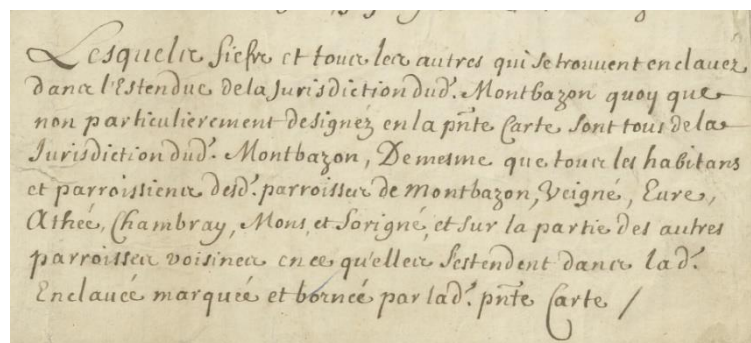 Lesquels fiefs et tous les autres qui se trouvent enclavez
dans l'Estendue de la Jurisdiction dud. Montbazon quoy que
non particulierement designéz en la pnte Carte sont tous de la
Jurisdiction dud. Montbazon, De mesme que tous les habitans
et parroissiens desd. parroisses de Montbazon, Veigné, Evre,
Athée, Chambray, Mons, et Sorigné, et sur la partie des autres
parroisses voisines en ce qu'elles s'estendent dans lad.
Enclavée marquée et bornée par lad. pnte Carte /